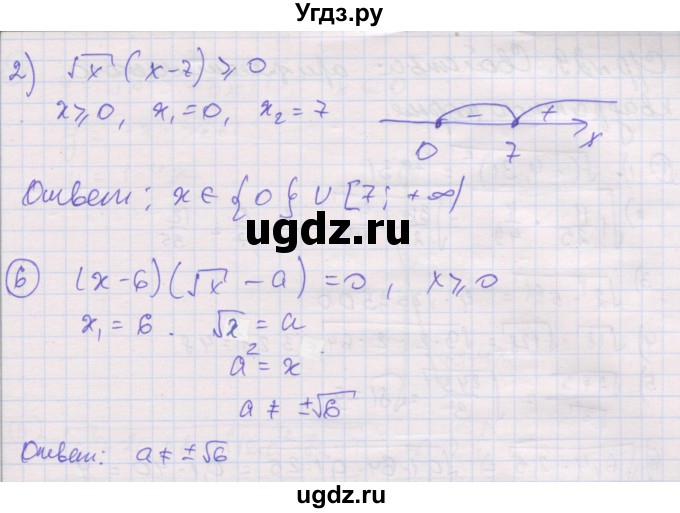 Угдз.ру
2) √x (x-7) ⩾ 0
x⩾0, x₁=0, x₂=7
- +
0 7 x
Ответ: x ∈ {0} ∪ [7; +∞)
ugdz.ru
6 (x-6)(√x - a) = 0, x⩾0
x₁ = 6. √x = a
a² = x
a ≠ ±√6
Ответ: a ≠ ±√6
ugdz.ru